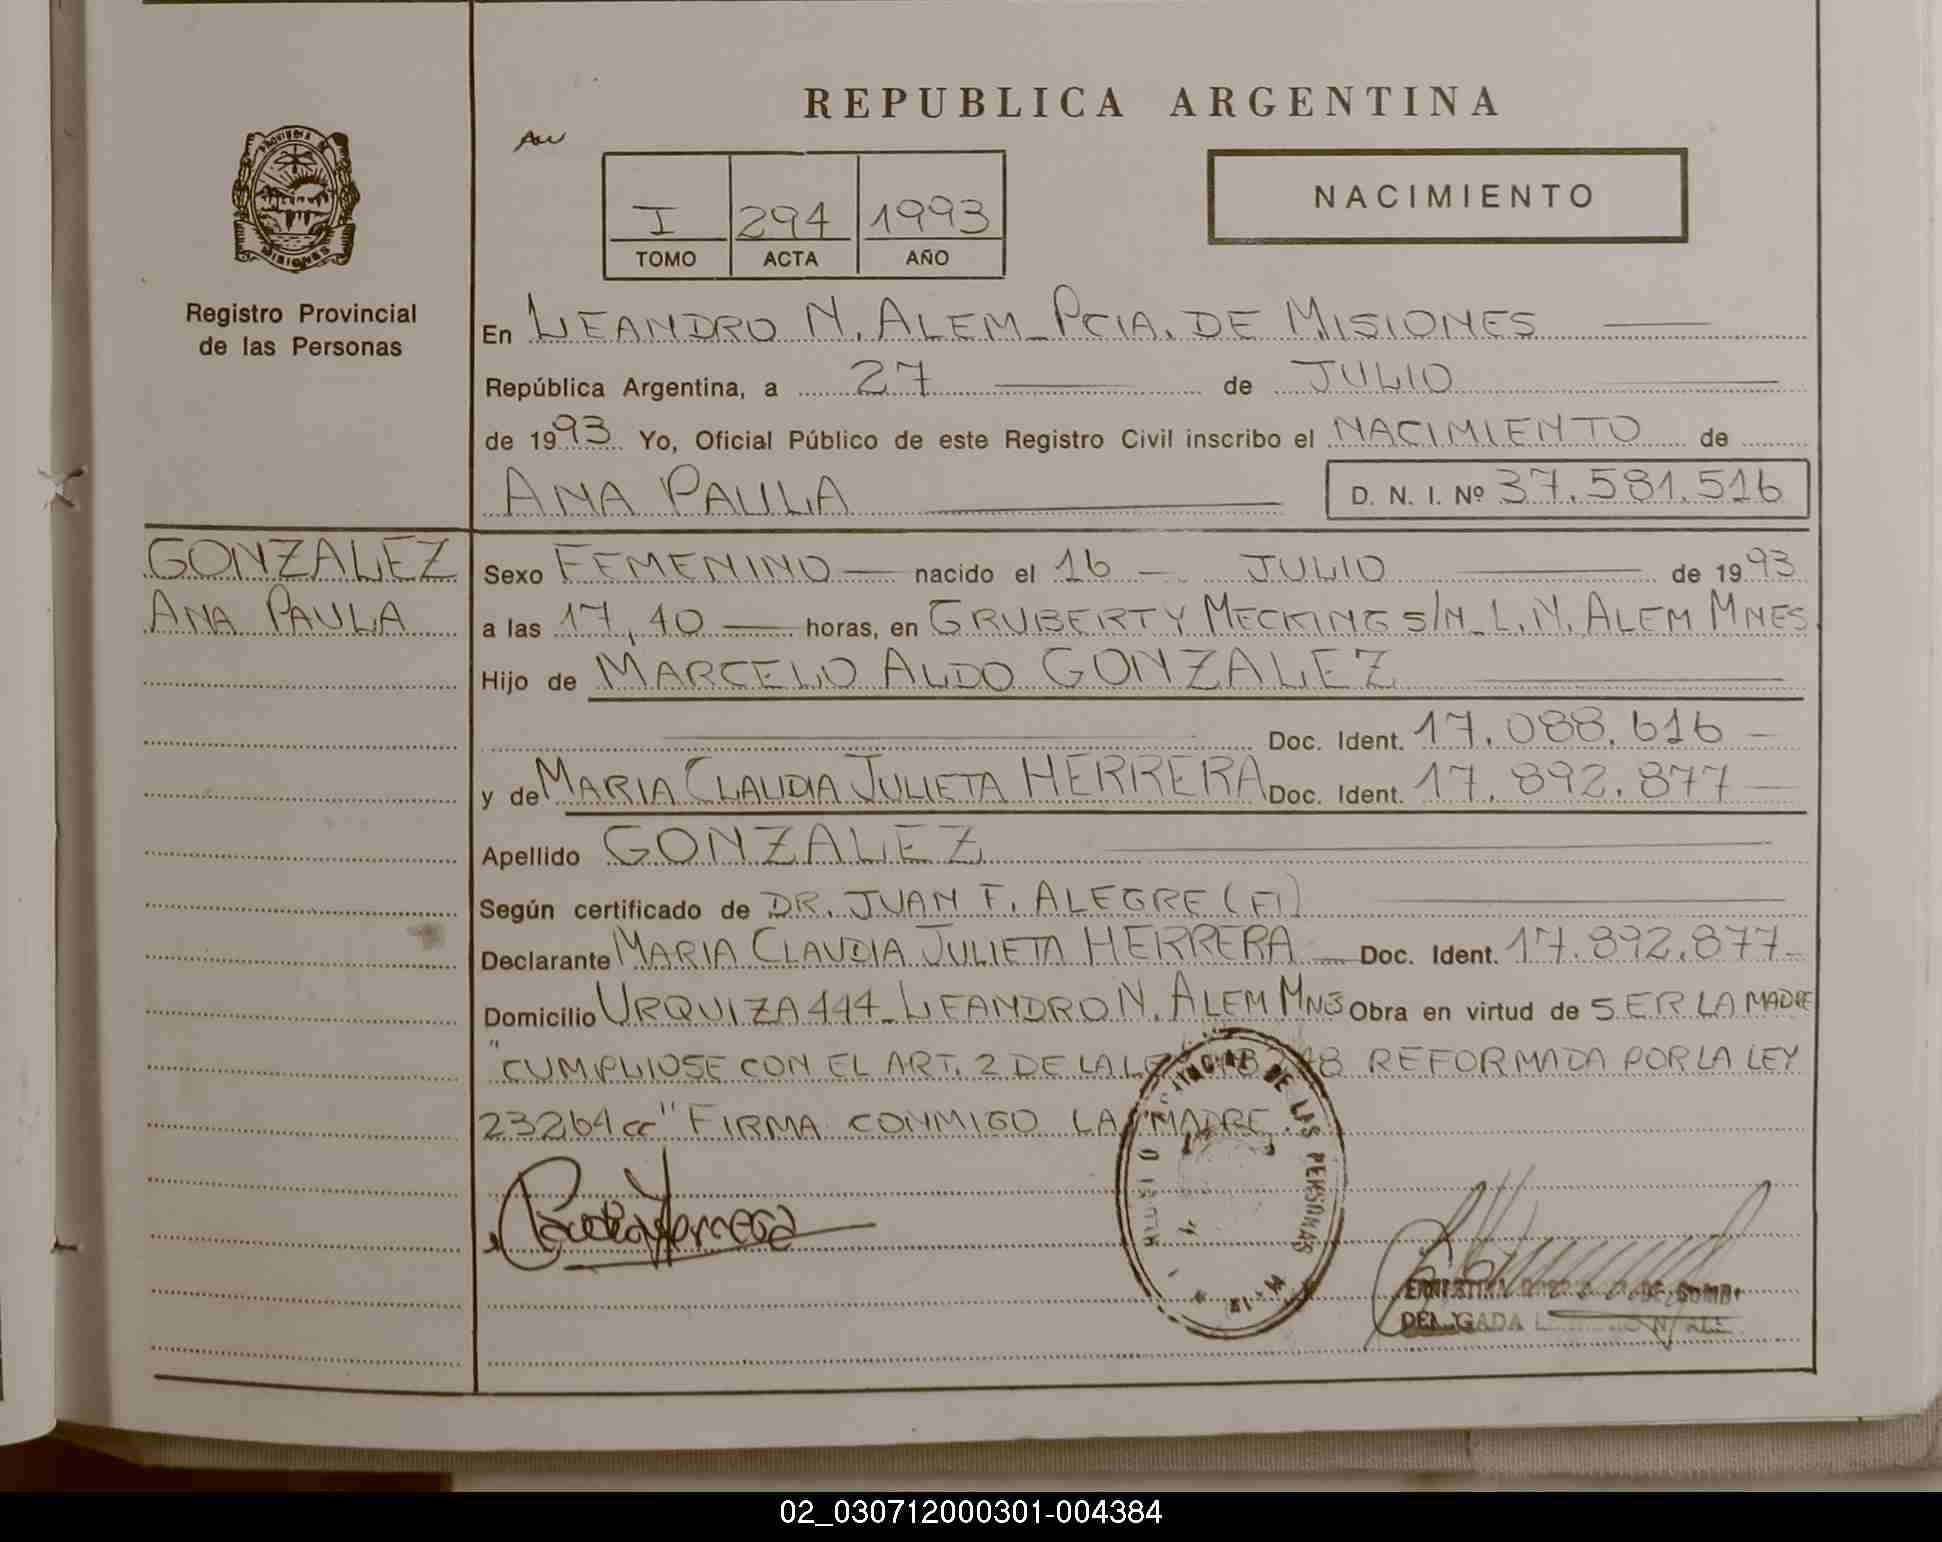 REPUBLICA ARGENTINA
NACIMIENTO
I 294 1993
TOMO ACTA AÑO
PROVINCIA DE
MISIONES
Registro Provincial
de las Personas
En LEANDRO N. ALEM_PCIA. DE MISIONES
República Argentina, a 27 de JULIO
de 1993 Yo, Oficial Público de este Registro Civil inscribo el NACIMIENTO de
ANA PAULA D. N. I. Nº 37.581.516
GONZALEZ
ANA PAULA
Sexo FEMENINO nacido el 16 - JULIO de 1993
a las 17,40 horas, en GRUBERT Y MECKING S/N_L.N. ALEM MNES.
Hijo de MARCELO ALDO GONZALEZ
Doc. Ident. 17.088.616
y de MARIA CLAUDIA JULIETA HERRERA Doc. Ident. 17.892.877
Apellido GONZALEZ
Según certificado de DR. JUAN F. ALEGRE (FI)
Declarante MARIA CLAUDIA JULIETA HERRERA Doc. Ident. 17.892.877-
Domicilio URQUIZA 444_LEANDRO N. ALEM MNS Obra en virtud de SER LA MADRE
"CUMPLIOSE CON EL ART. 2 DE LA REFORMADA POR LA LEY
23264 cc" FIRMA CONMIGO LA MADRE.
DE LAS PERSONAS
Claudia Herrera
02_030712000301-004384